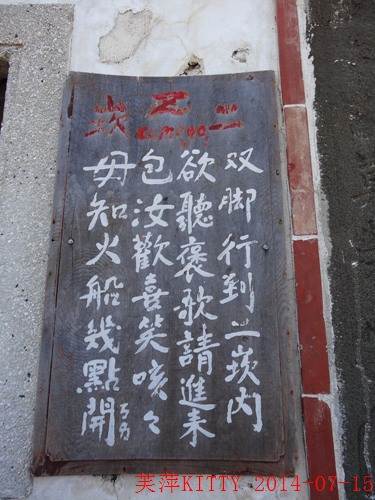 双脚行到二崁内
欲聽褒歌請進来
包汝歡喜笑咳々
毋知火船幾點開
芙萍KITTY 2014-07-15